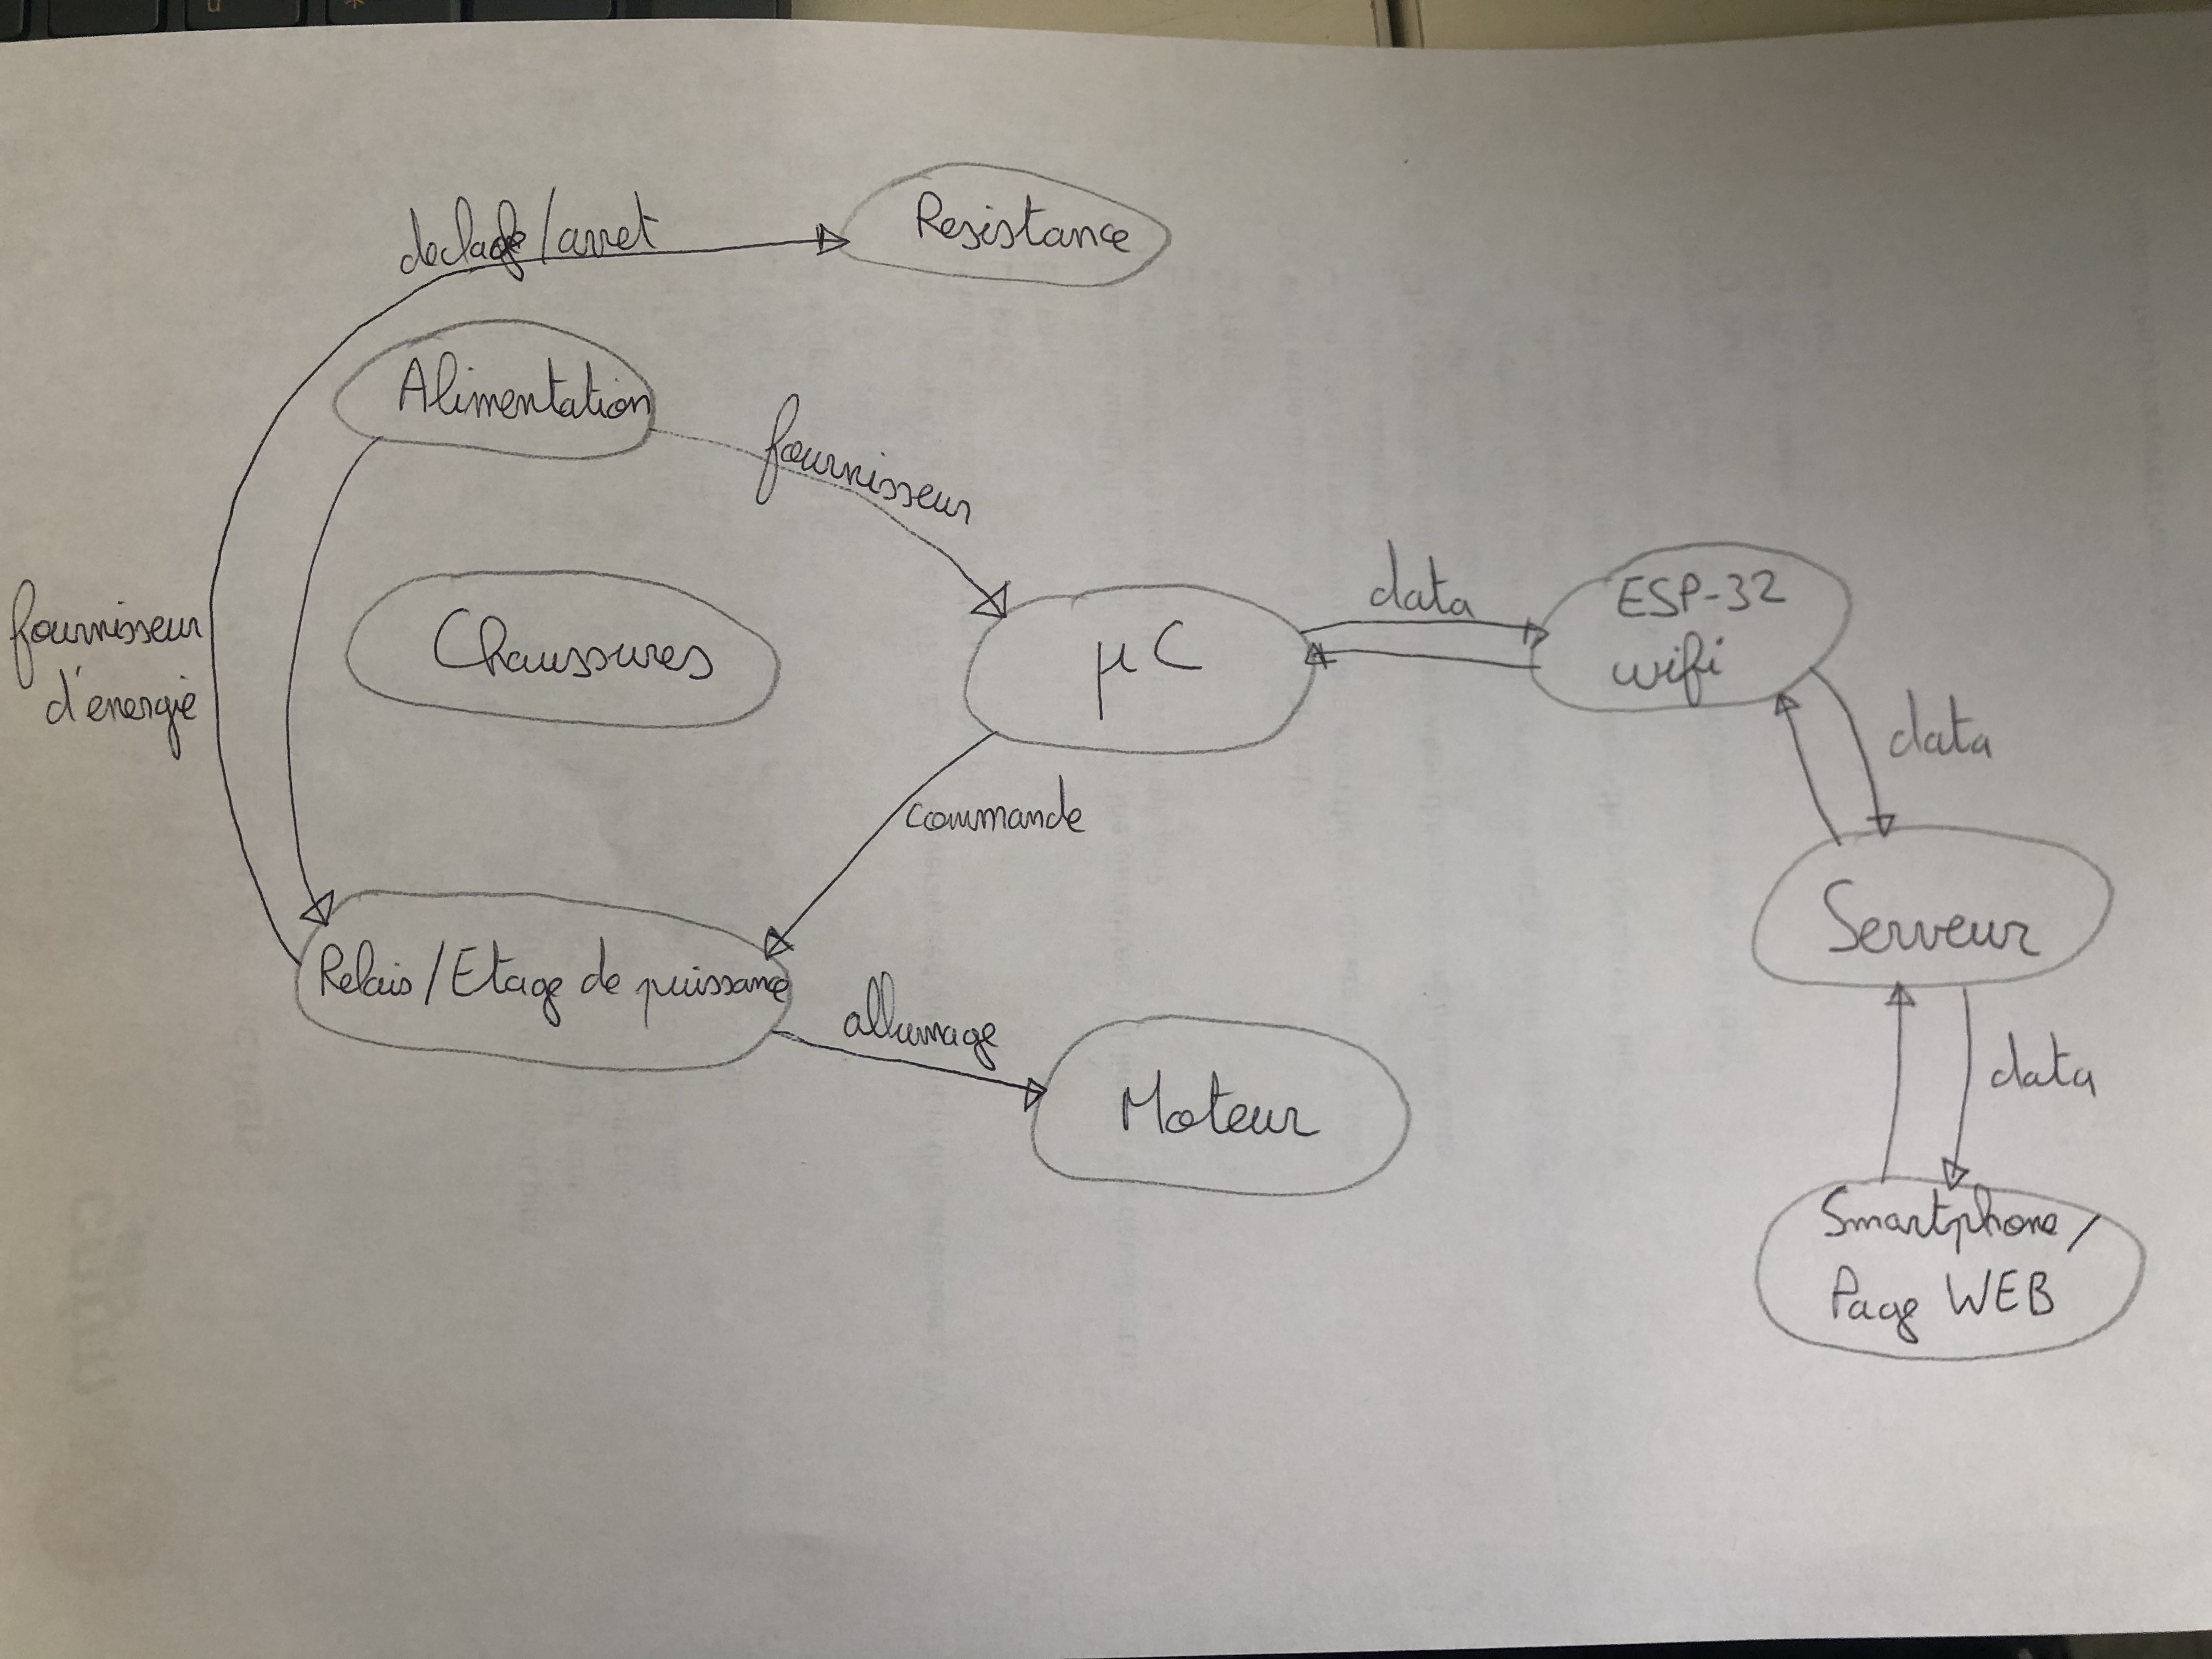 /arret
Resistance
Alimentation
fournisseur
fournisseur
d'énergie
Chaussures
µC
data
ESP-32
wifi
data
commande
Serveur
Relais/Etage de puissance
allumage
Moteur
data
Smartphone/
Page WEB